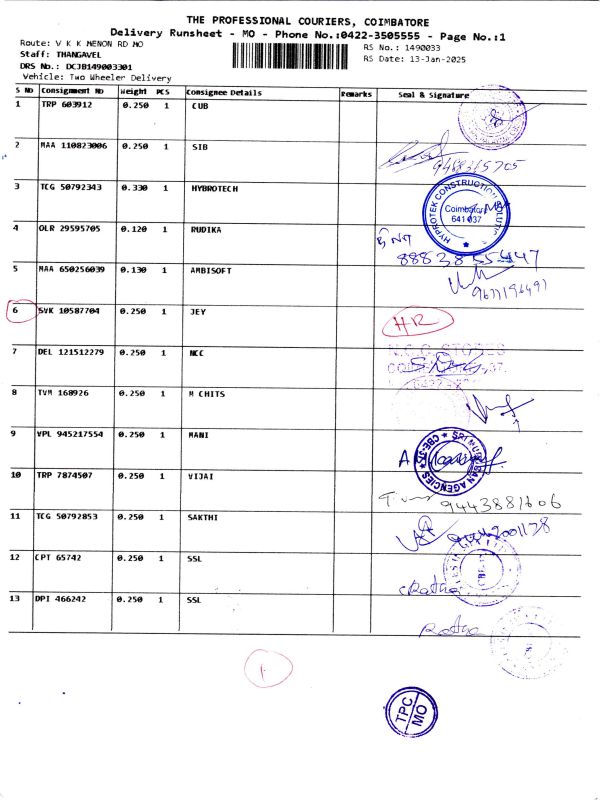 THE PROFESSIONAL COURIERS, COIMBATORE
Delivery Runsheet - MO - Phone No.:0422-3505555 - Page No.:1
Route: V K K MENON RD MO
RS No.: 1490033
Staff: THANGAVEL
RS Date: 13-Jan-2025
DRS No.: DCJB149003301
Vehicle: Two Wheeler Delivery
S No Consignment No Weight PCS Consignee Details Remarks Seal & Signature
1 TRP 603912 0.250 1 CUB
2 MAA 110823006 0.250 1 SIB
9488315705
3 TCG 50792343 0.330 1 HYBROTECH
HYPROTEK CONSTRUCTION
Coimbatore
641 037
4 OLR 29595705 0.120 1 RUDIKA
8883855447
5 MAA 650256039 0.130 1 AMBISOFT
9677196491
6 SVK 10587704 0.250 1 JEY HR
7 DEL 121512279 1 NCC
N.C.C. STORES
8 TVM 168926 0.250 1 M CHITS
9 VPL 945217554 0.250 1 MANI
SRI MURUGAN AGENCIES ★ CBE-37 ★
10 TRP 7874507 0.250 1 VIJAI
9443881606
11 TCG 50792853 0.250 1 SAKTHI
12 CPT 65742 0.250 1 SSL
Ratha
13 DPI 466242 0.250 1 SSL
Ratha
1
TPC
MO